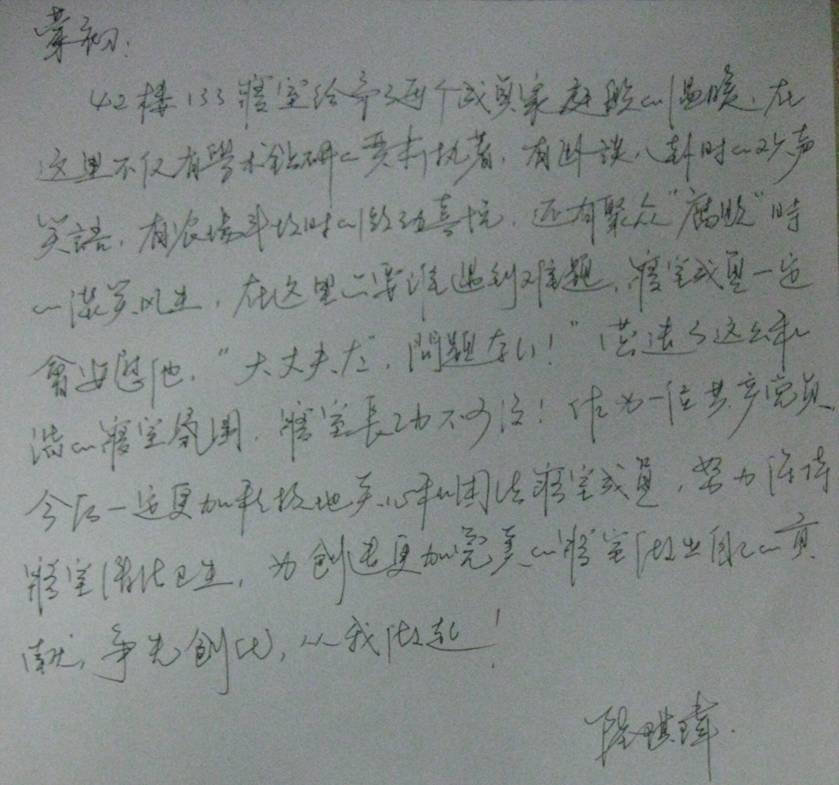 42楼133寝室给予了每个成员家庭般的温暖,在
这里不仅有學术钻研的严肃执著,有畅谈八卦时的欢声
笑語,有农場丰收时的激动喜悦,还有聚众“腐败”時
的谈笑风生,在这里只要谁遇到难题,寝室成員一定
會安慰他,“大丈夫だ,問題ない!”营造了这么和
谐的寝室氛围,寝室長功不可没!作为一位共产党員
今后一定更加积极地关心和团结寝室成員,努力保持
寝室清洁卫生,为创造更加完美的寝室做出自己的贡
献,争先创优,从我做起!